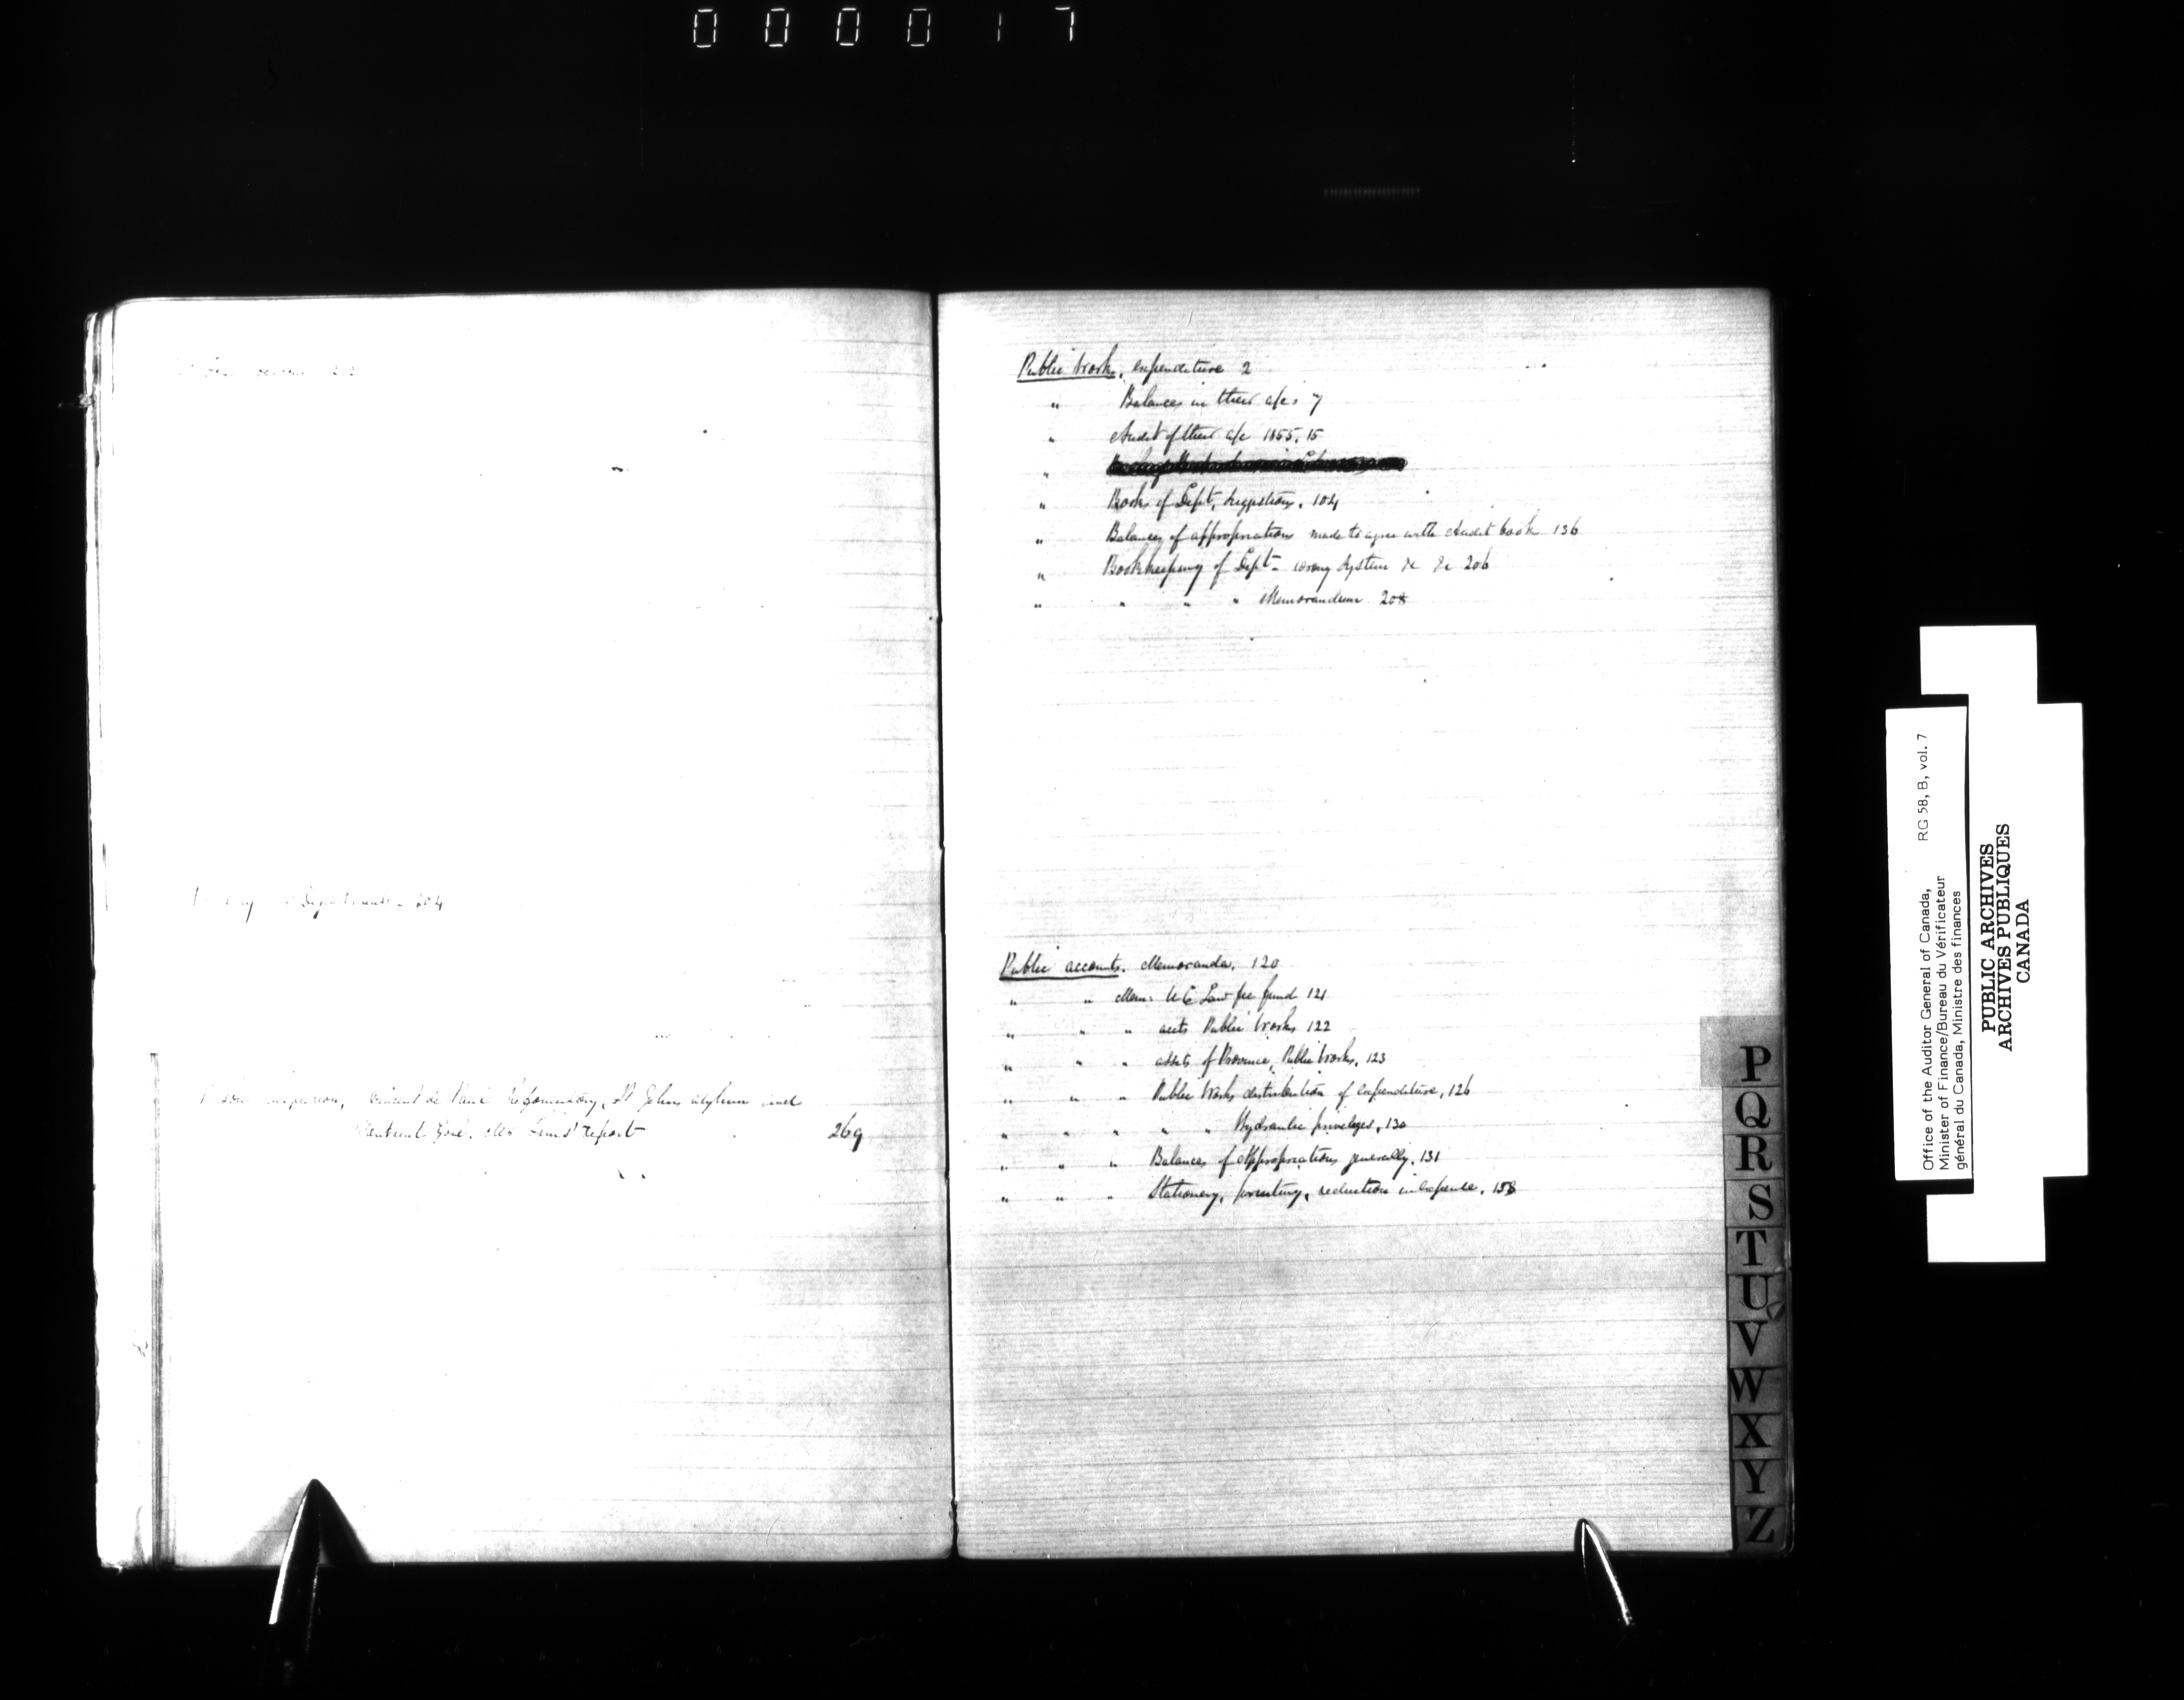 000017
Departments - 204
Vincent de Paul Reformatory, St Johns asylum and
Montreal Gaol. report 269
Public Works, expenditure 2
" Balances in their a/cs 7
" Audit of their a/c 1855. 15
"
" Books of Dept, suggestions, 104
" Balances of appropriations made to agree with Audit book 136
" Bookkeeping of Dept - wrong system &c &c 206
" " " " Memorandum 208
Public accounts. Memoranda, 120
" " Mem: U C Law fee fund 121
" " " accts Public Works 122
" " " assets of Province, Public Works, 123
" " " Public Works distribution of expenditure, 126
" " " " " Hydraulic priveleges, 130
" " " Balances of Appropriations generally, 131
" " " Stationery, printing, reduction in expense, 158
P
Q
R
S
T
U
V
W
X
Y
Z
Office of the Auditor General of Canada, RG 58, B, vol. 7
Minister of Finance/Bureau du Vérificateur
général du Canada, Ministre des finances
PUBLIC ARCHIVES
ARCHIVES PUBLIQUES
CANADA